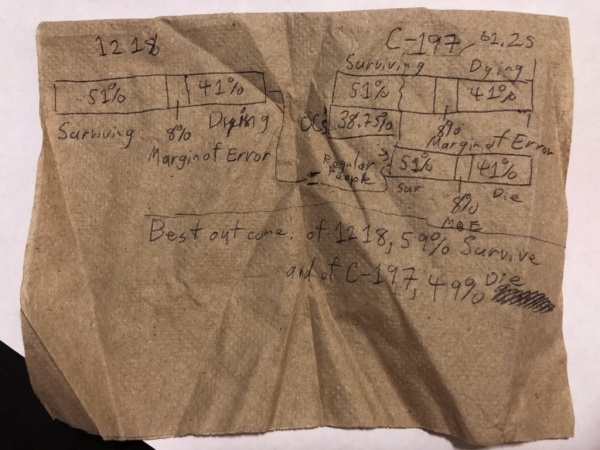 1218
51%
41%
Surviving
8%
Dying
Margin of Error
C-197
61.25
Surviving
Dying
51%
41%
OCs
38.75%
8%
Margin of Error
Regular People
51%
41%
Sur
8%
Die
MoE
Best outcome: of 1218, 59% Survive
and of C-197, 49% Die